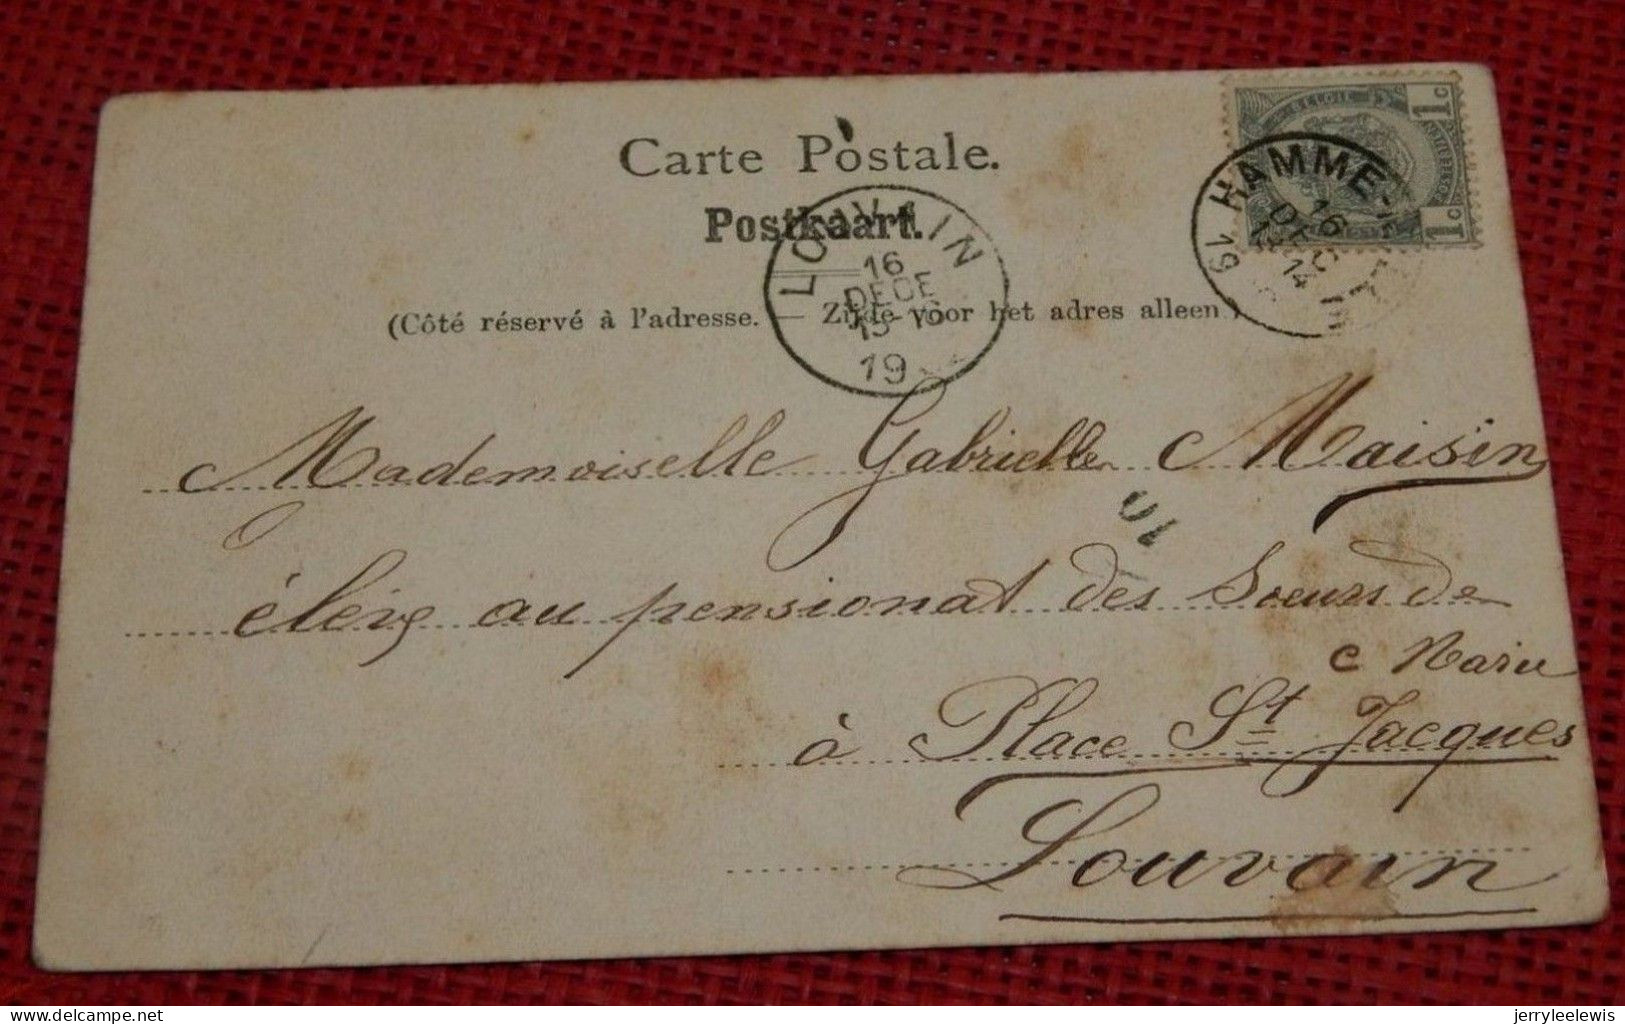 Carte Postale.
Postkaart.
(Côté réservé à l'adresse. — Zijde voor het adres alleen)
BELGIE
1c
1c
HAMME
16
DEC
14
19
LOUVAIN
16
DECE
15-16
19
Mademoiselle Gabrielle Maisin
10
élève au pensionat des Soeurs de
Marie
à Place St Jacques
Louvain
delcampe.net
jerryleelewis